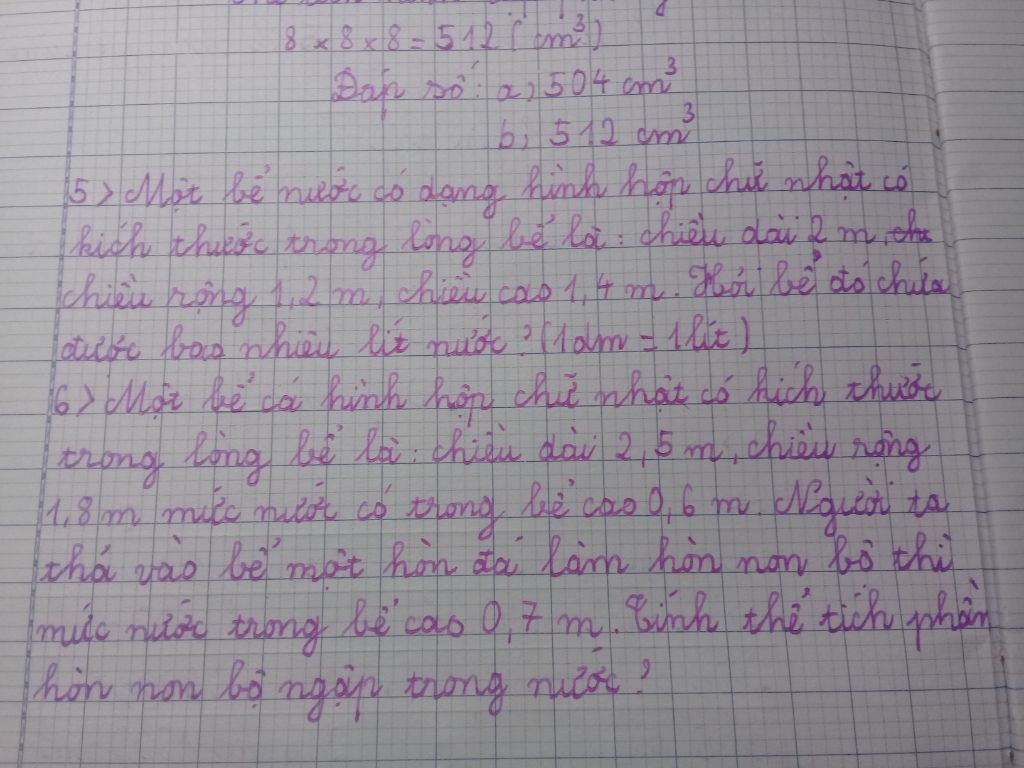 8 x 8 x 8 = 512 (cm³)
Đáp số: a, 504 cm³
b, 512 cm³
5> Một bể nước có dạng hình hộp chữ nhật có
kích thước trong lòng bể là: chiều dài 2 m,
chiều rộng 1,2 m, chiều cao 1,4 m. Hỏi bể đó chứa
được bao nhiêu lít nước? (1dm = 1lít)
6> Một bể cá hình hộp chữ nhật có kích thước
trong lòng bể là: chiều dài 2,5 m, chiều rộng
1,8 m mức nước có trong bể cao 0,6 m. Người ta
thả vào bể một hòn đá làm hòn non bộ thì
mức nước trong bể cao 0,7 m. Tính thể tích phần
hòn non bộ ngập trong nước?